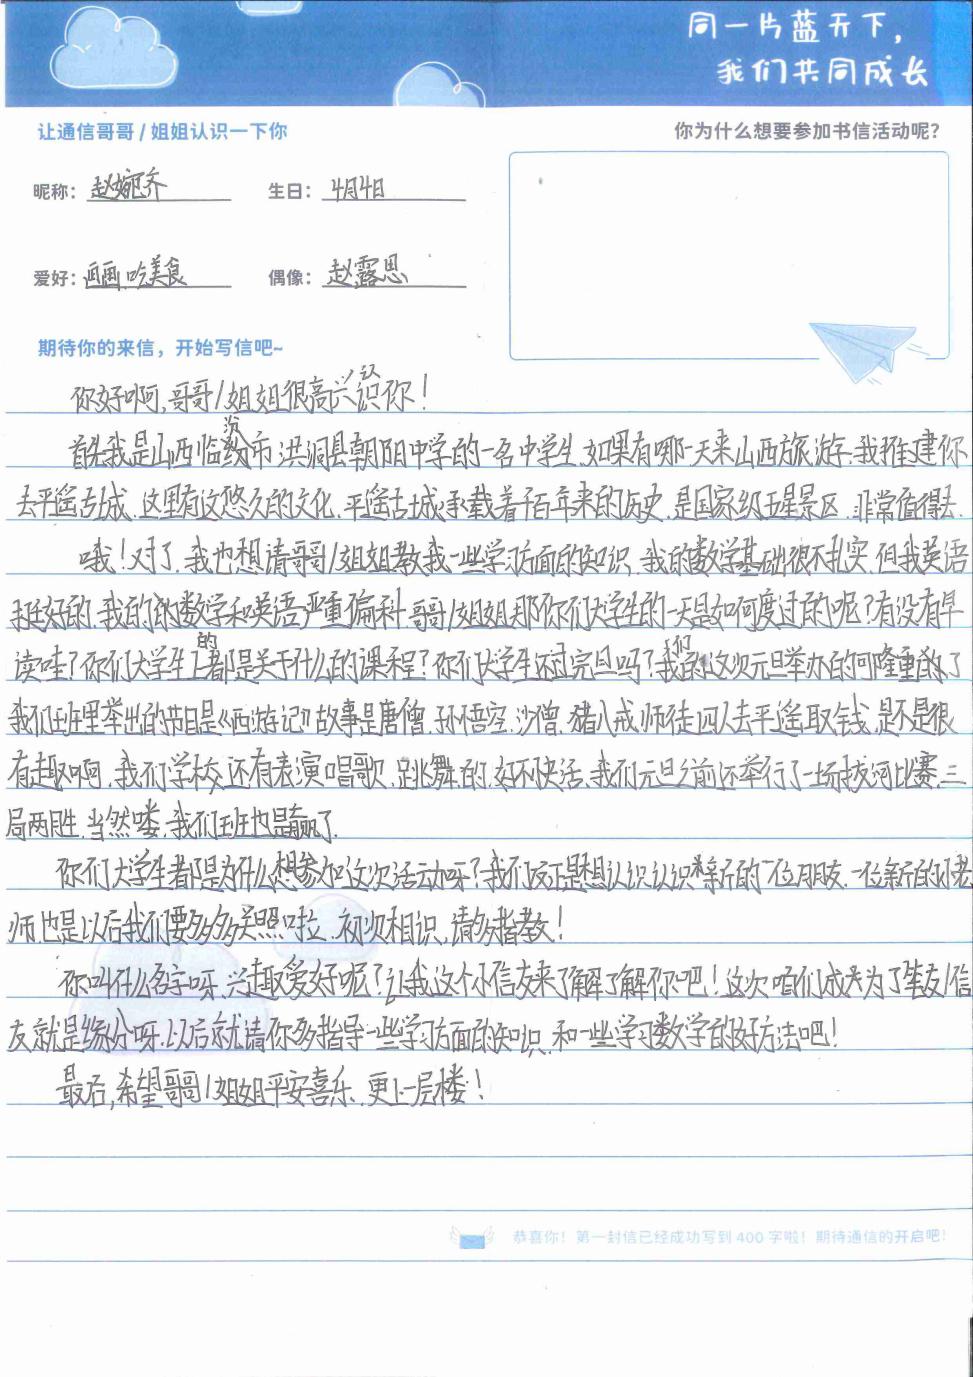 同一片蓝天下，
我们共同成长
让通信哥哥 / 姐姐认识一下你
你为什么想要参加书信活动呢？
昵称： 赵婉乔 生日： 4月4日
爱好： 画画、吃美食 偶像： 赵露思
期待你的来信，开始写信吧~
你好啊,哥哥/姐姐很高兴认识你！
首先我是山西临汾市洪洞县朝阳中学的一名中学生,如果有哪一天来山西旅游.我推建你
去平遥古城.这里有这悠久的文化.平遥古城承载着千百年来的历史.是国家级五星景区.非常值得去.
哦！对了.我也想请哥哥/姐姐教我一些学习方面的知识.我的数学基础很不扎实.但我英语
挺好的.我的的数学和英语严重偏科.哥哥/姐姐那你们大学生的一天是如何度过的呢？有没有早
读哇？你们大学生上的都是关于什么的课程？你们大学生还过完旦吗？我们的这次元旦举办的可隆重了
我们班里举出的节目是《西游记》故事是唐僧.孙悟空.沙僧.猪八戒.师徒四人去平遥取钱.是不是很
有趣啊.我们学校还有表演唱歌.跳舞的.好不快活.我们元旦之前还举行了一场拔河比赛.三
局两胜.当然喽.我们班也是赢了.
你们大学生都是为什么想参加这次活动呀？我们反正是想认识认识新的一位朋友.一位新的小老
师也是以后我们要多多关照啦.初次相识,请多指教！
你叫什么名字呀.兴趣爱好呢？让我这个小信友来了解了解你吧！这次咱们成为了笔友/信
友就是缘分呀.以后就请你多指导一些学习方面的知识.和一些学习数学的好方法吧！
最后,希望哥哥/姐姐平安喜乐.更上一层楼！
恭喜你！第一封信已经成功写到 400 字啦！期待通信的开启吧！